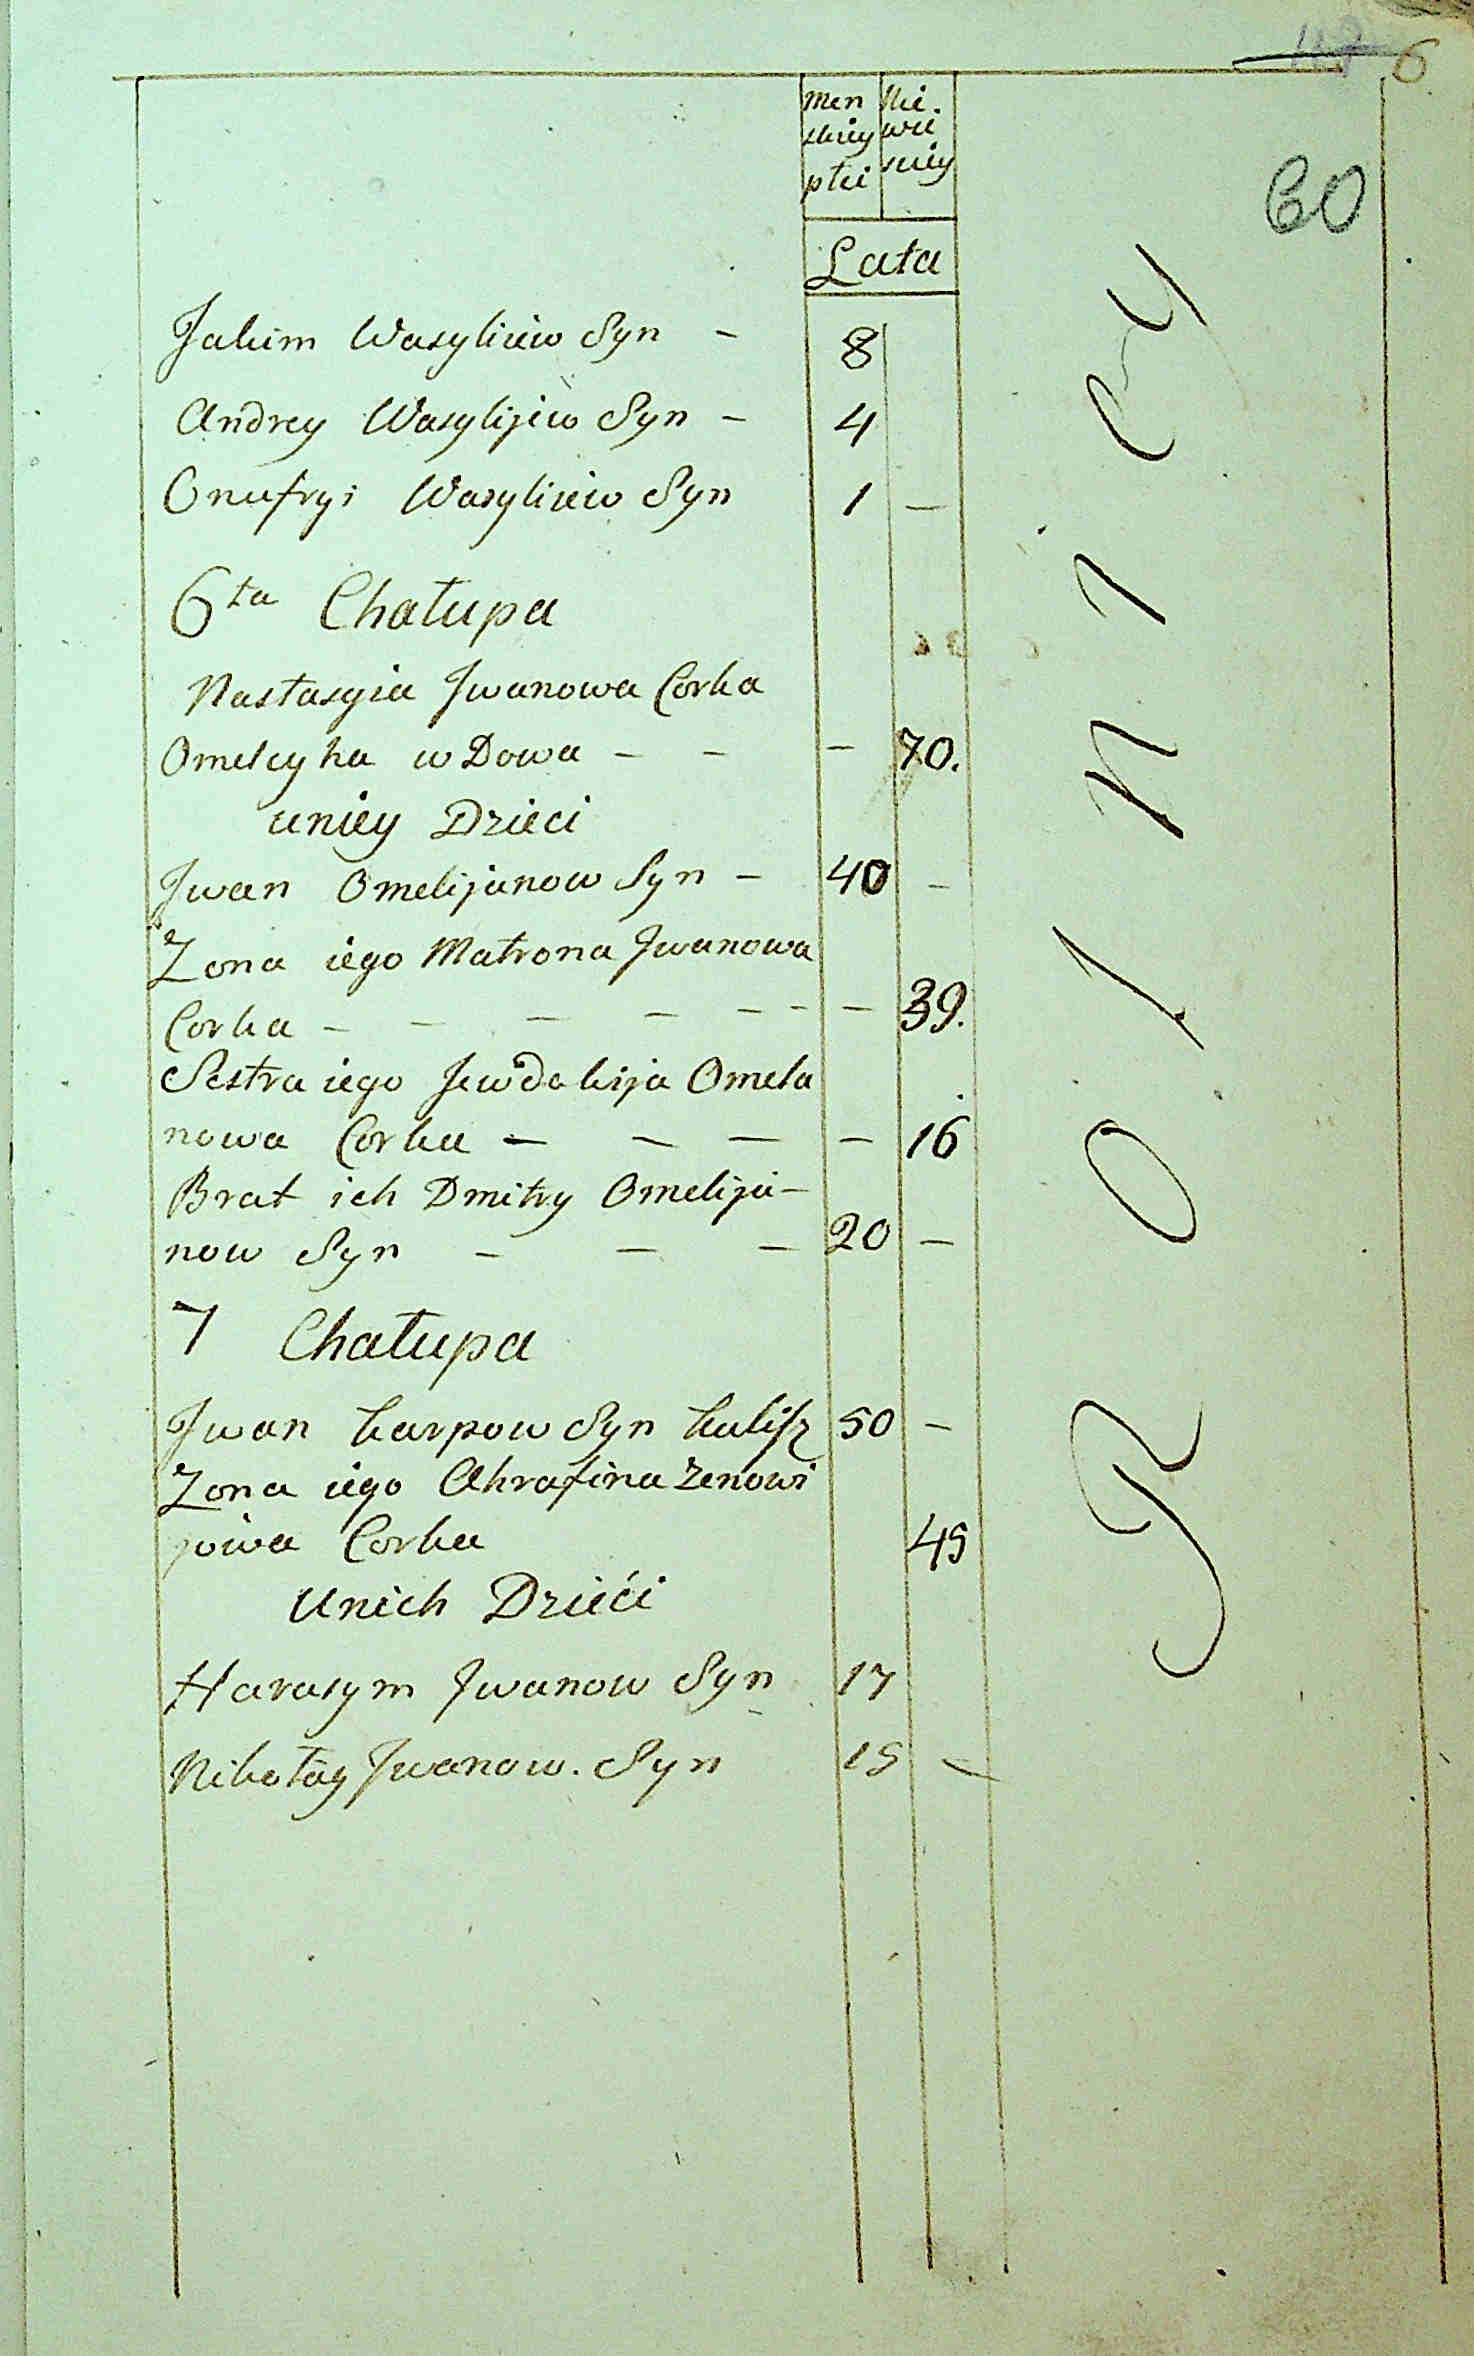 6
60
Men Nie.
skiey wie
płci sciey
Lata
Jakim Wasyliiew Syn - 8
Andrey Wasylijew Syn - 4
Onufryi Wasyliiew Syn 1 -
6ta Chałupa
Nastasyia Jwanowa Corka
Omelcyha w Dowa - - - 70.
uniey Dzieci
Jwan Omelijanow Syn - 40 -
Zona iego Matrona Jwanowa
Corka - - - - - - - 39.
Sestra iego Jewdokija Omela
nowa Corka - - - - 16
Brat ich Dmitry Omelija-
now Syn - - - 20 -
7 Chałupa
Jwan Karpow Syn Kulisz 50 -
Zona iego Ahrafina Zenowi
jowa Corka 45
Unich Dzieći
Harasym Jwanow Syn 17
Nikołay Jwanow. Syn 15 -
Rolnicy